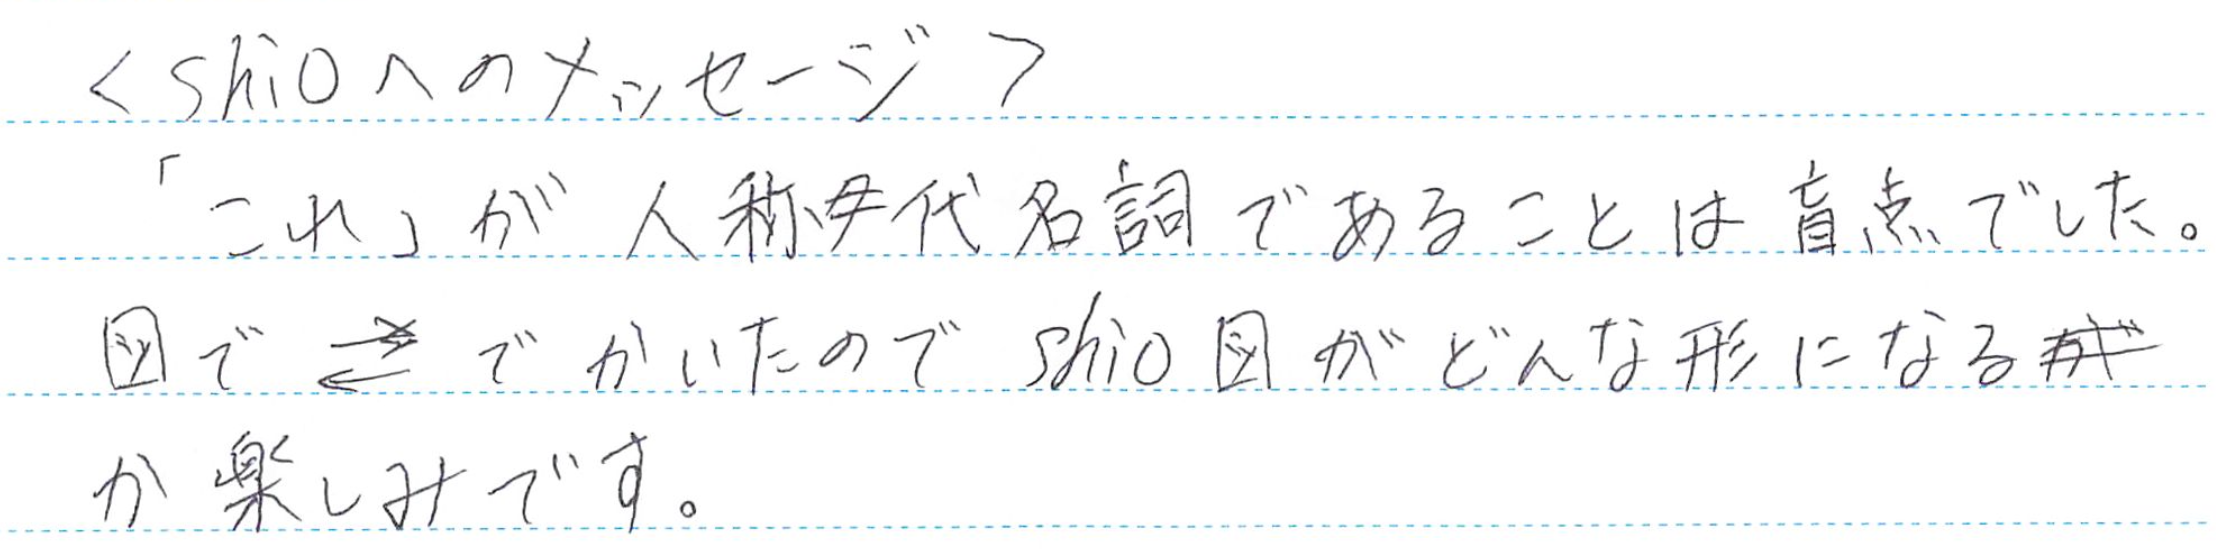 <shioへのメッセージ>
「これ」が人称代名詞であることは盲点でした。
図で⇄でかいたのでshio図がどんな形になる
か楽しみです。